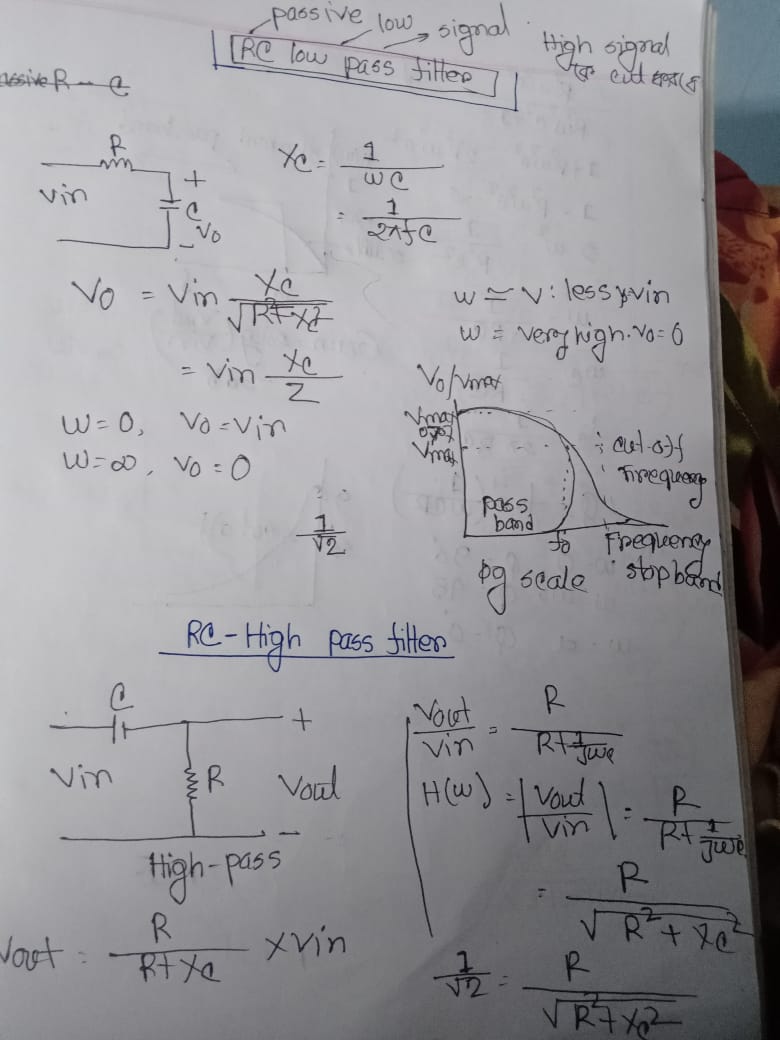 passive low signal
RC low pass filter
High signal
কে cut করবে
R C
R
Vin
+
C
Vo
-
Xc = 1/ωC
= 1/2πfC
Vo = Vin Xc/√R²+Xc²
= Vin Xc/Z
ω = 0, Vo = Vin
ω = ∞, Vo = 0
1/√2
ω ≈ v: less
ω = very high. Vo = 0
Vo/Vmax
Vmax
Vmax
cut-off
Frequency
pass
band
fo
Frequency
scale
stop band
RC-High pass filter
C
+
Vin
R
Vout
-
High-pass
Vout = R/R+Xc × Vin
Vout/Vin = R/R+1/jωc
H(ω) = |Vout/Vin| = R/R+1/jωc
= R/√R²+Xc²
1/√2 = R/√R²+Xc²